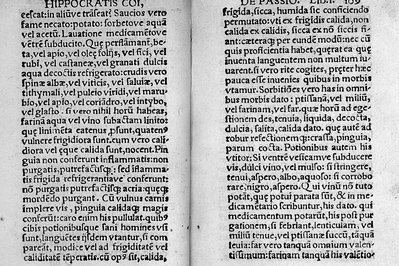 HIPPOCRATIS COI,
cescat: in aliũve trãseat? Saucios vero
fame necato: potato: sorbetove aquã
vel acetũ. Lauatione medicamentove
vẽtrẽ subducito. Que p̃flamãnt, be-
ta, vel apio, vel oleę folijs, vel fici, vel
rubi, vel castaneæ, vel granati dulcis
aqua decoctis refrigerato: crudis vero
spinæ albæ, vel viticis, vel saluiæ, vel
tithymali, vel puleio viridi, vel maru-
bio, vel apio, vel coriãdro, vel intybo,
vel glasto. si vero nihil horũ habeas,
farina aqua vel vino subactam linito:
que limi nẽta eatenus p̃sunt, quatenꝰ
vulnere frigidiora sunt. cum vero cali
diora vel eque calida sunt, nocent. Pin
guia non conferunt inflammatis: non
purgatis, putrefactisq́;: sed inflamma-
tis frigida refrigerantiáve conferunt:
nõ purgatis putrefactisq́; acria: quęq́;
mordẽdo purgant. Cũ vulnus carnis
implere vis, pinguia calidaq́; magis
conferũt: caro enim his pullulat. quibꝰ
cibis potionibusque sani homines vti
sunt, languẽtes ijsdem vtantur, si com
pareãt, modice vel ad frigiditatẽ vel
caliditatẽ tẽperatis. cũ opꝰ sit, calida,
DE PASSIO. LIB. I. 109
frigida, sicca, humida sic conficiendo
permutato: vti ex frigidis calida, non
calidis frigida, ex calidis, sicca ex nõ siccis fi-
ant: cæteraq́; per eundẽ modũ: nec cũ
quis proficientia habet, queręt ea que
inuenta languentibus non multum iu
uarent. si vero rite cogites, præter hæc
pauca esse inuenies quibus in morbis
vtamur. Sorbitiões vero has in omni-
bus morbis dato: ptissanã, vel milij,
vel farinam, vel far. quæ horũ ad ege-
stionem des, tenuia, liquida, decocta,
dulcia, salita, calida dato. quæ autẽ ad
robur resectionemq́;: crassa, pinguia,
parum cocta. Potionibus autem his
vtitor: Si ventrẽ vesicamve subducere
vis, dulci vino, vel mulso: si stringere,
tenui, aspero, albo, aquoso: si corrobo
rare, nigro, aspero. Qui vinũ nõ tuto
potãt, quę potui parata sũt, & in me-
dicamẽtario scribuntur, his dato. qui
medicamentum potarũt, his post pur
gationem, si febriant, lenticulam, vel
milij tenue, vel ptissanã succũ, tãquã
leuia: far vero tanquã omnium valen-
tissimum: farinam tanquã his valẽtio